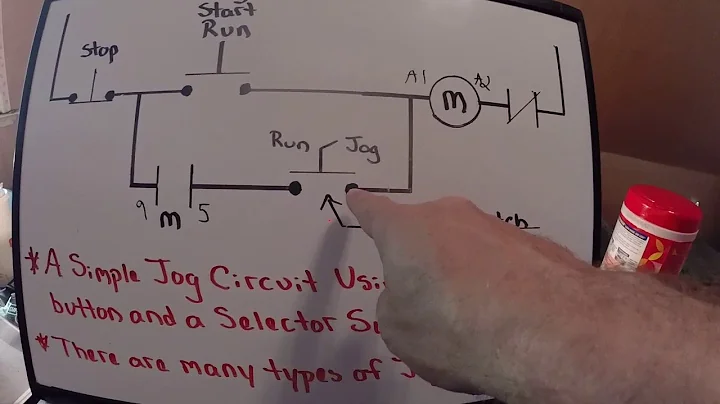 Start
Run
Stop
A1
A2
M
Run Jog
9 M 5
* A Simple Jog Circuit
button and a Selector
* There are many types of